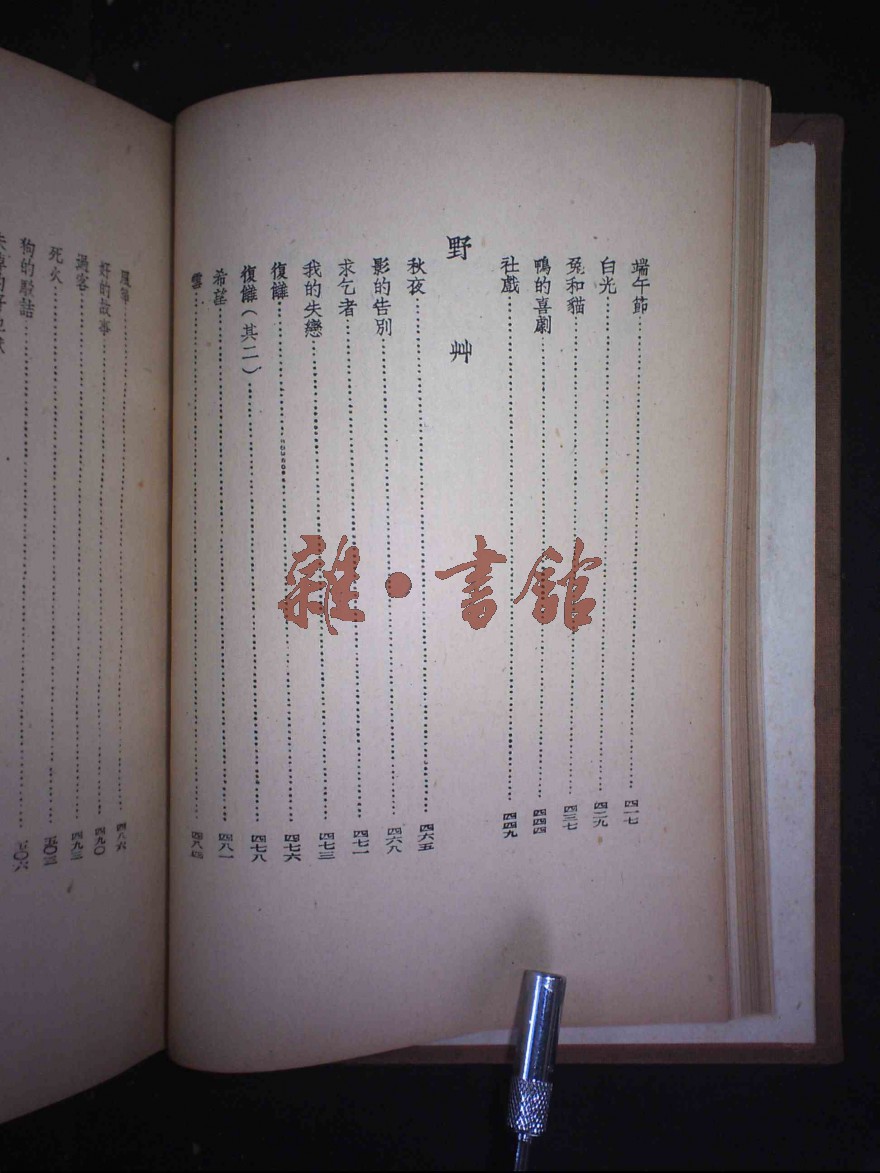 端午節⋯⋯四一七
白光⋯⋯四二九
兔和貓⋯⋯四三七
鴨的喜劇⋯⋯四四四
社戲⋯⋯四四九
野艸
秋夜⋯⋯四六五
影的告別⋯⋯四六八
求乞者⋯⋯四七一
我的失戀⋯⋯四七三
復讎⋯⋯四七六
復讎(其二)⋯⋯四七八
希望⋯⋯四八一
雪⋯⋯四八四
風箏⋯⋯四八六
好的故事⋯⋯四九〇
過客⋯⋯四九三
死火⋯⋯五〇三
狗的駁詰⋯⋯五〇六
雜·書館